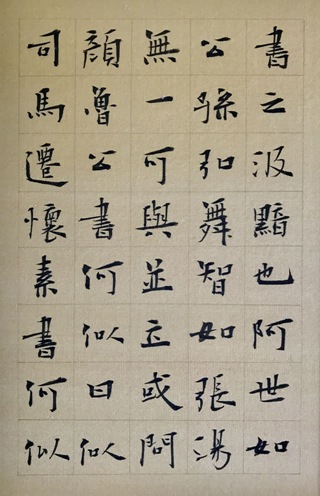 書之汲黯也阿世如
公孫弘舞智如張湯
無一可與並立或問
顏魯公書何似曰似
司馬遷懷素書何似